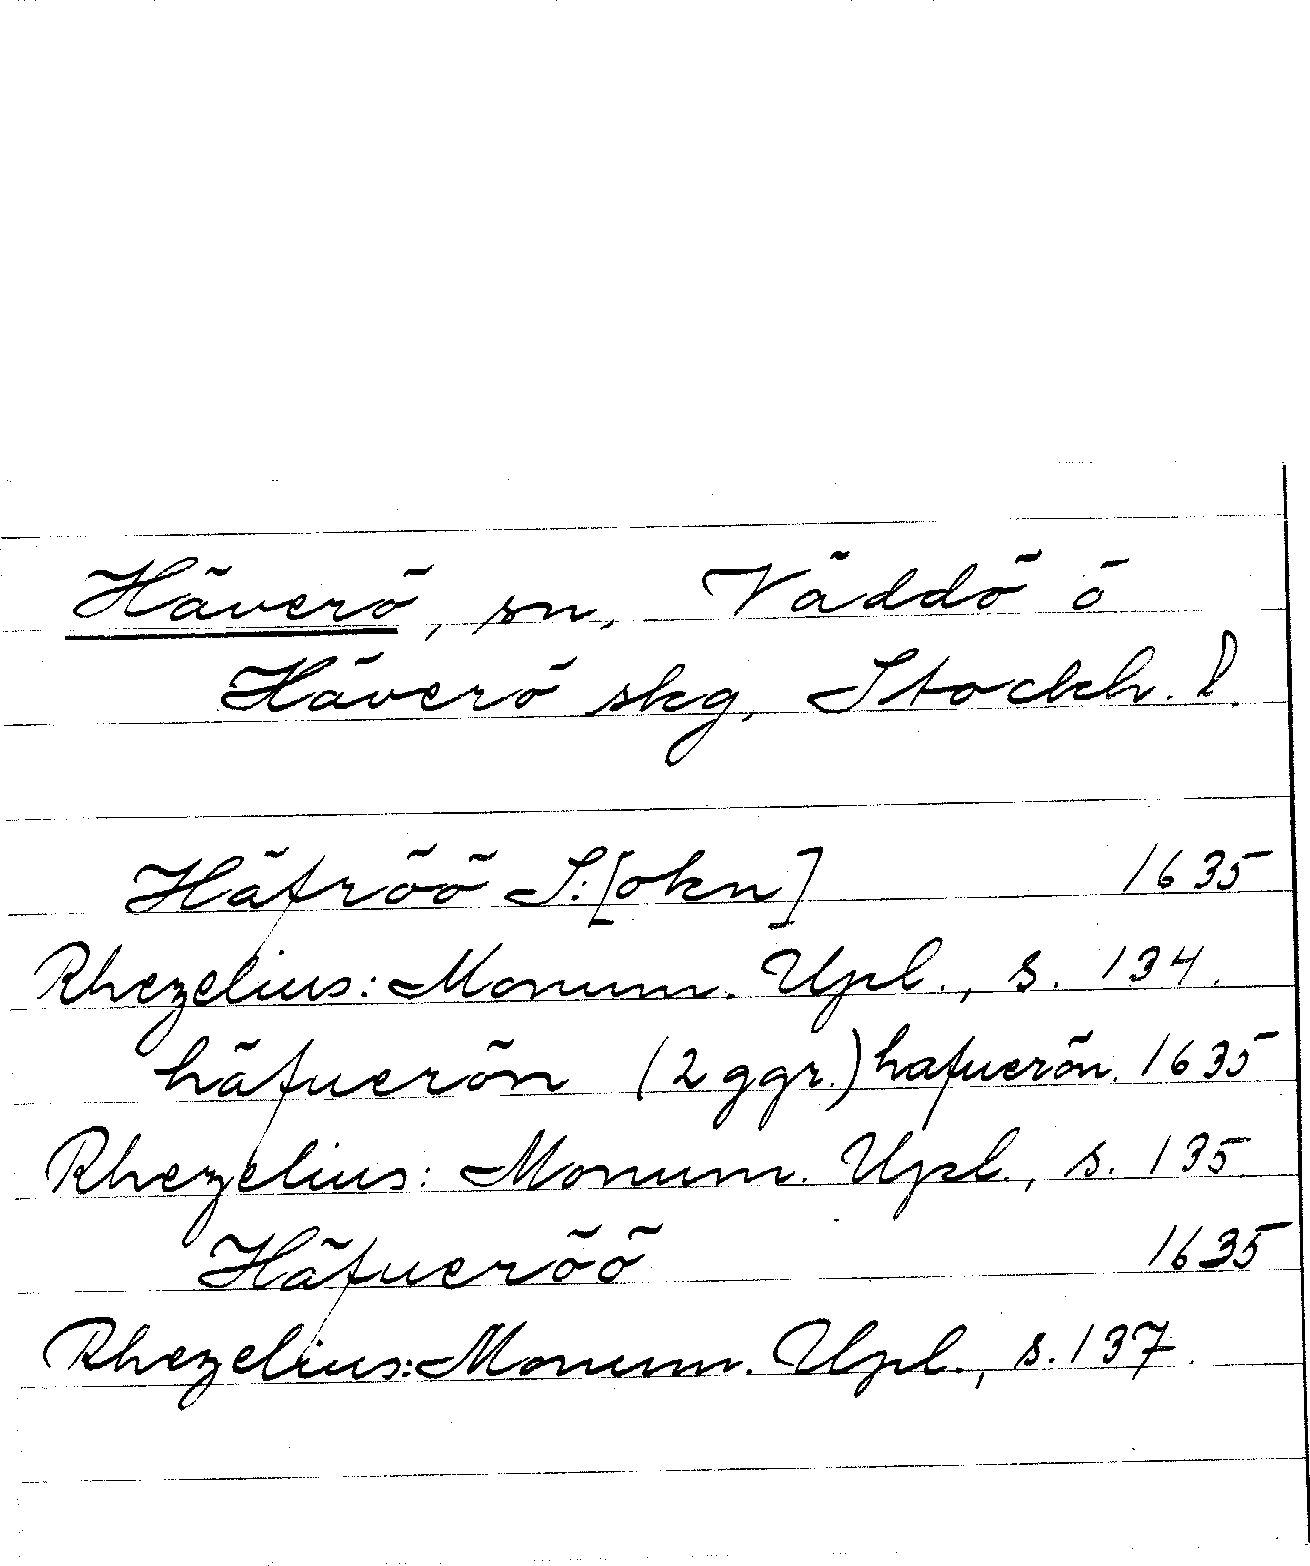 Häverö, sn, Väddö o
Häverö skg, Stockh. l.
Häfröö S:[okn] 1635
Rhezelius: Monum. Upl., s. 134.
häfuerön (2 ggr.) hafuerön. 1635
Rhezelius: Monum. Upl., s. 135
Häfueröö 1635
Rhezelius: Monum. Upl., s. 137.